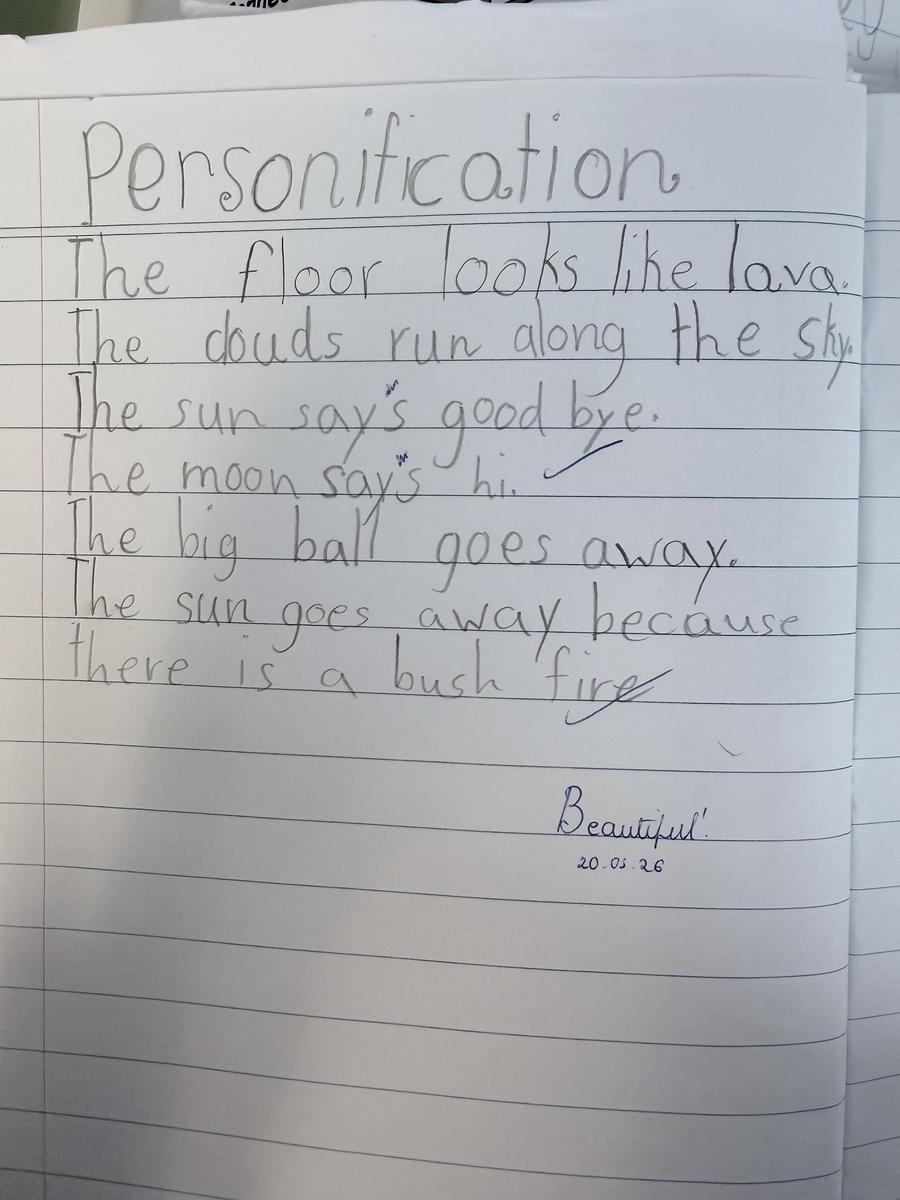 Personification
The floor looks like lava.
The clouds run along the sky.
The sun say's good bye.
The moon say's hi.
The big ball goes away.
The sun goes away because
there is a bush fire
Beautiful!
20.05.26